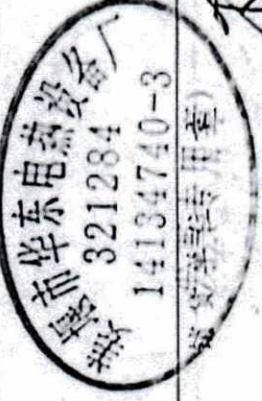 姜堰市华东电热设备厂
321284
14134740-3
专用章)